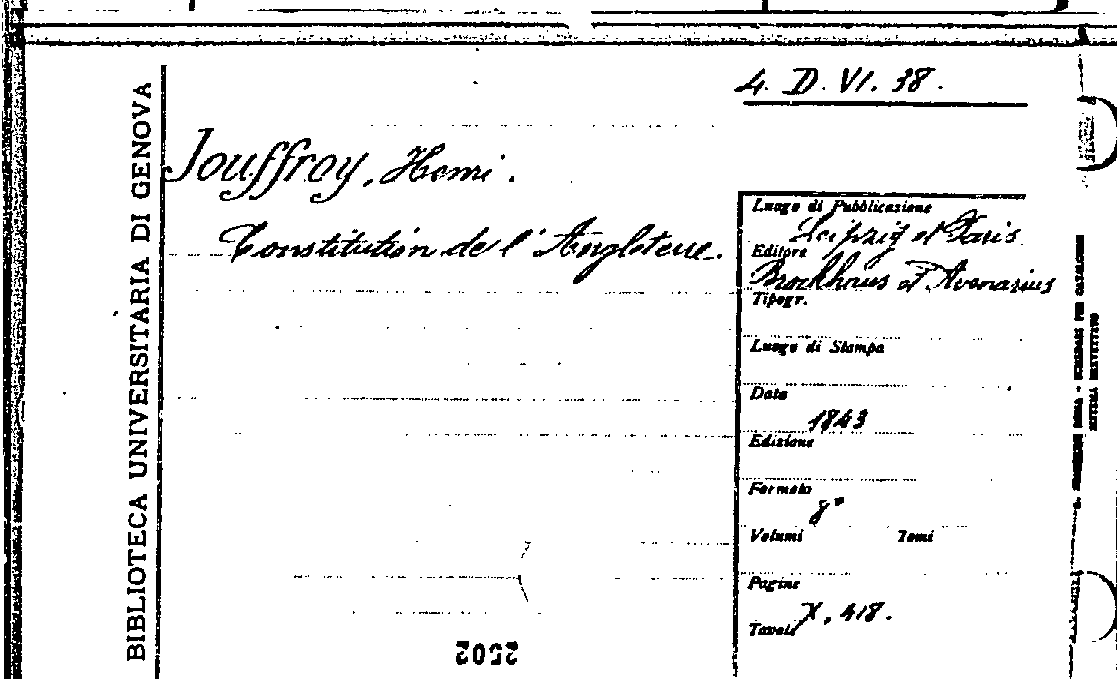 4. D. VI. 38.
BIBLIOTECA UNIVERSITARIA DI GENOVA
Jouffroy, Henri.
Constitution de l'Angleterre.
Luogo di Pubblicazione
Leipzig et Paris
Editore
Brockhaus et Avenarius
Tipogr.
Luogo di Stampa
Data
1843
Edizione
Formato
8°
Volumi Tomi
Pagine
X, 418.
Tavole
2502